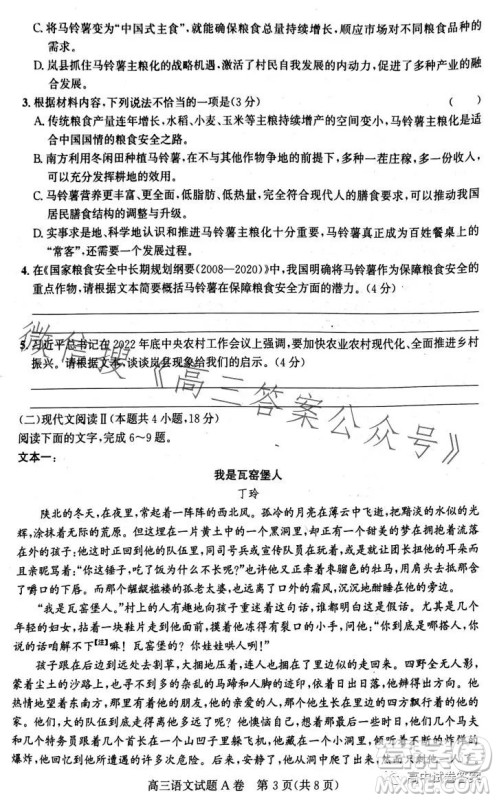 C. 将马铃薯变为“中国式主食”,能够有效确保粮食总量持续增长,顺应市场对粮食种类
的需求。
D. 岚县抓住马铃薯主粮化的战略机遇,激活了村民自我发展的内驱力,促进了多种产业的
融合发展。
3. 根据材料内容,下列说法不恰当的一项是(3 分) ( )
A. 传统粮食产量连年增长,水稻、小麦、玉米等主粮增产的空间变小,马铃薯主粮化是符合
中国国情的粮食安全之路。
B. 南方利用冬闲田种植马铃薯,在与其他作物争地的前提下,多种一茬庄稼,多一份收入,也
可以充分发挥耕地的效用。
C. 马铃薯营养更丰富、全面,低脂肪、低热量,可以满足现代人的膳食要求,可以推动我国
居民膳食结构的调整与升级。
D. 实事求是地、科学地认识马铃薯主粮化十分重要,马铃薯主粮化成为百姓餐桌上的
“常客”,还需要一个发展过程。
4. 在《国家粮食安全中长期规划纲要(2008—2020)》中,我国明确将马铃薯作为保障粮食安全的
重点作物,请根据文本简要概括马铃薯在保障粮食安全方面的潜力。(4 分)
5. 习近平总书记在 2022 年底中央农村工作会议上强调,要加快农业农村现代化、全面推进乡村
振兴。请根据文本,谈谈岚县现象给我们的启示。(4 分)
微信搜《高三答案公众号》
(二)现代文阅读Ⅱ(本题共 4 小题,18 分)
阅读下面的文字,完成 6~9 题。
文本一:
我是瓦窑堡人
丁玲
陕北的冬天,在夜里,常起着一阵阵的西北风。孤冷的月亮在薄云中飞逝,把黯淡的水似的光
辉,涂抹着无际的荒原。但这埋在一片黄土中的一个黑洞里,却正有一个甜美的梦在拥抱着这睡
在外边的孩子:他这时正回到他的队伍里,同司号兵或宣传队员在玩着,或是让团长扭他的耳朵而
且亲昵地骂着:“你这锤子,吃了饭为什么不长呢?”也许他正牵着枣骝色的牡马,用肩头去抵含
了嚼口的下唇。那个龌龊褴褛的孤老太婆,也远离了口外的霜风,沉沉地酣睡在他的旁边。
“我是瓦窑堡人。”村上的人有趣地向孩子重述着这句话,谁也明白这是假话。尤其是几个
年轻的妇女,拈着一块鞋片走到他面前,摸着他冻得有裂口的小手,问他:“你到底是哪搭人,你
说的话咱解不下【注】嘛! 瓦窑堡的? 你娃娃哄人咧!”
孩子跟在后边到远处去割草,大捆地压着,连人也捆在了里边似的走回来。四野全无人影,
蒙着尘土的沙路上,也寻不到多的杂乱的马蹄和人脚的迹印,依着日出日落,他辨得出方向。他
热情地望着东南方,那里有着他的朋友,他的亲爱的人,那个他生长在里边的四方飘行着的他的
家。他们,大的队伍到底走得离他多远了呢?他懊恼自己,想着那最后一些时日,他们几个马夫
和几个特务员跟着几个首长在一个山凹子里躲飞机,他藏在一个小洞里,倾听着不断的炸弹的
爆炸,他回忆到他多次的危险。后来,安静了,他从洞中爬了出来,然而只剩他一人了。他大声地
高三语文试题 A 卷 第 3 页(共 8 页)
高中试卷答案